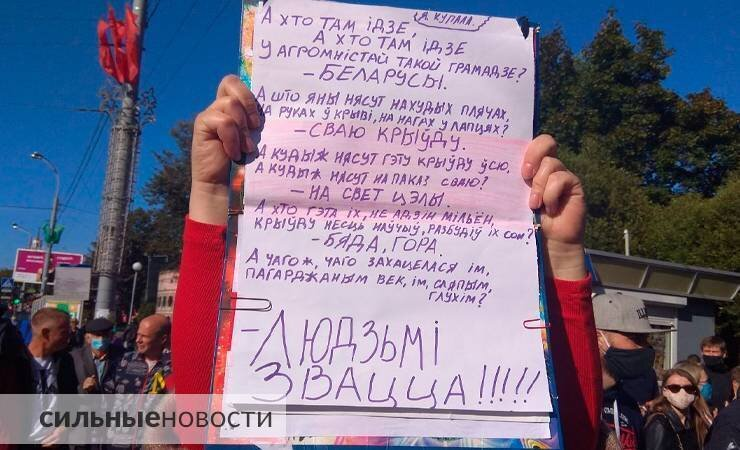 Я. КУПАЛА.
А ХТО ТАМ ІДЗЕ,
А ХТО ТАМ ІДЗЕ
У АГРОМНІСТАЙ ТАКОЙ ГРАМАДЗЕ?
– БЕЛАРУСЫ.
А ШТО ЯНЫ НЯСУТ НАХУДЫХ ПЛЯЧАХ,
НА РУКАХ Ў КРЫВІ, НА НАГАХ У ЛАПЦЯХ?
– СВАЮ КРЫЎДУ.
А КУДЫЖ НЯСУТ ГЭТУ КРЫЎДУ ЎСЮ,
А КУДЫЖ НЯСУТ НА ПАКАЗ СВАЮ?
– НА СВЕТ ЦЭЛЫ.
А ХТО ГЭТА ІХ, НЕ АДЗІН МІЛЬЁН,
КРЫЎДУ НЕСЦЬ НАУЧЫЎ, РАЗБУДІЎ ІХ СОН?
– БЯДА, ГОРА.
А ЧАГО Ж, ЧАГО ЗАХАЦЕЛАСЯ ІМ,
ПАГАРДЖАНЫМ ВЕК, ІМ, СЛЯПЫМ,
ГЛУХІМ?
– ЛЮДЗЬМІ
ЗВАЦЦА!!!!!
СИЛЬНЫЕНОВОСТИ